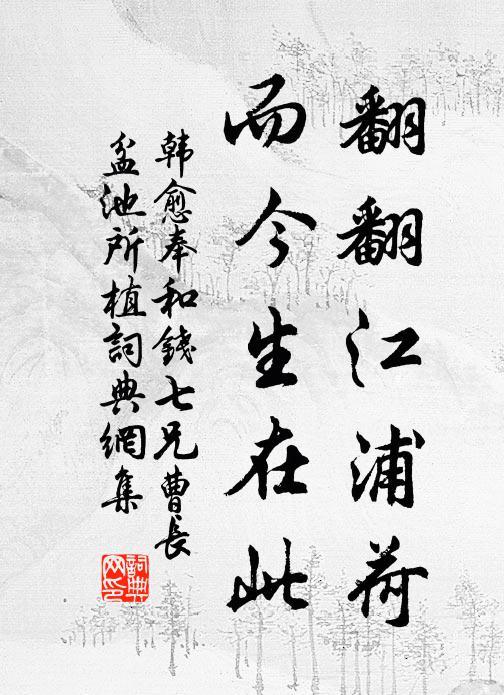 翻翻江浦荷
而今生在此
韩愈奉和錢七兄曹長
盆池所植詞典網集
詞典網印